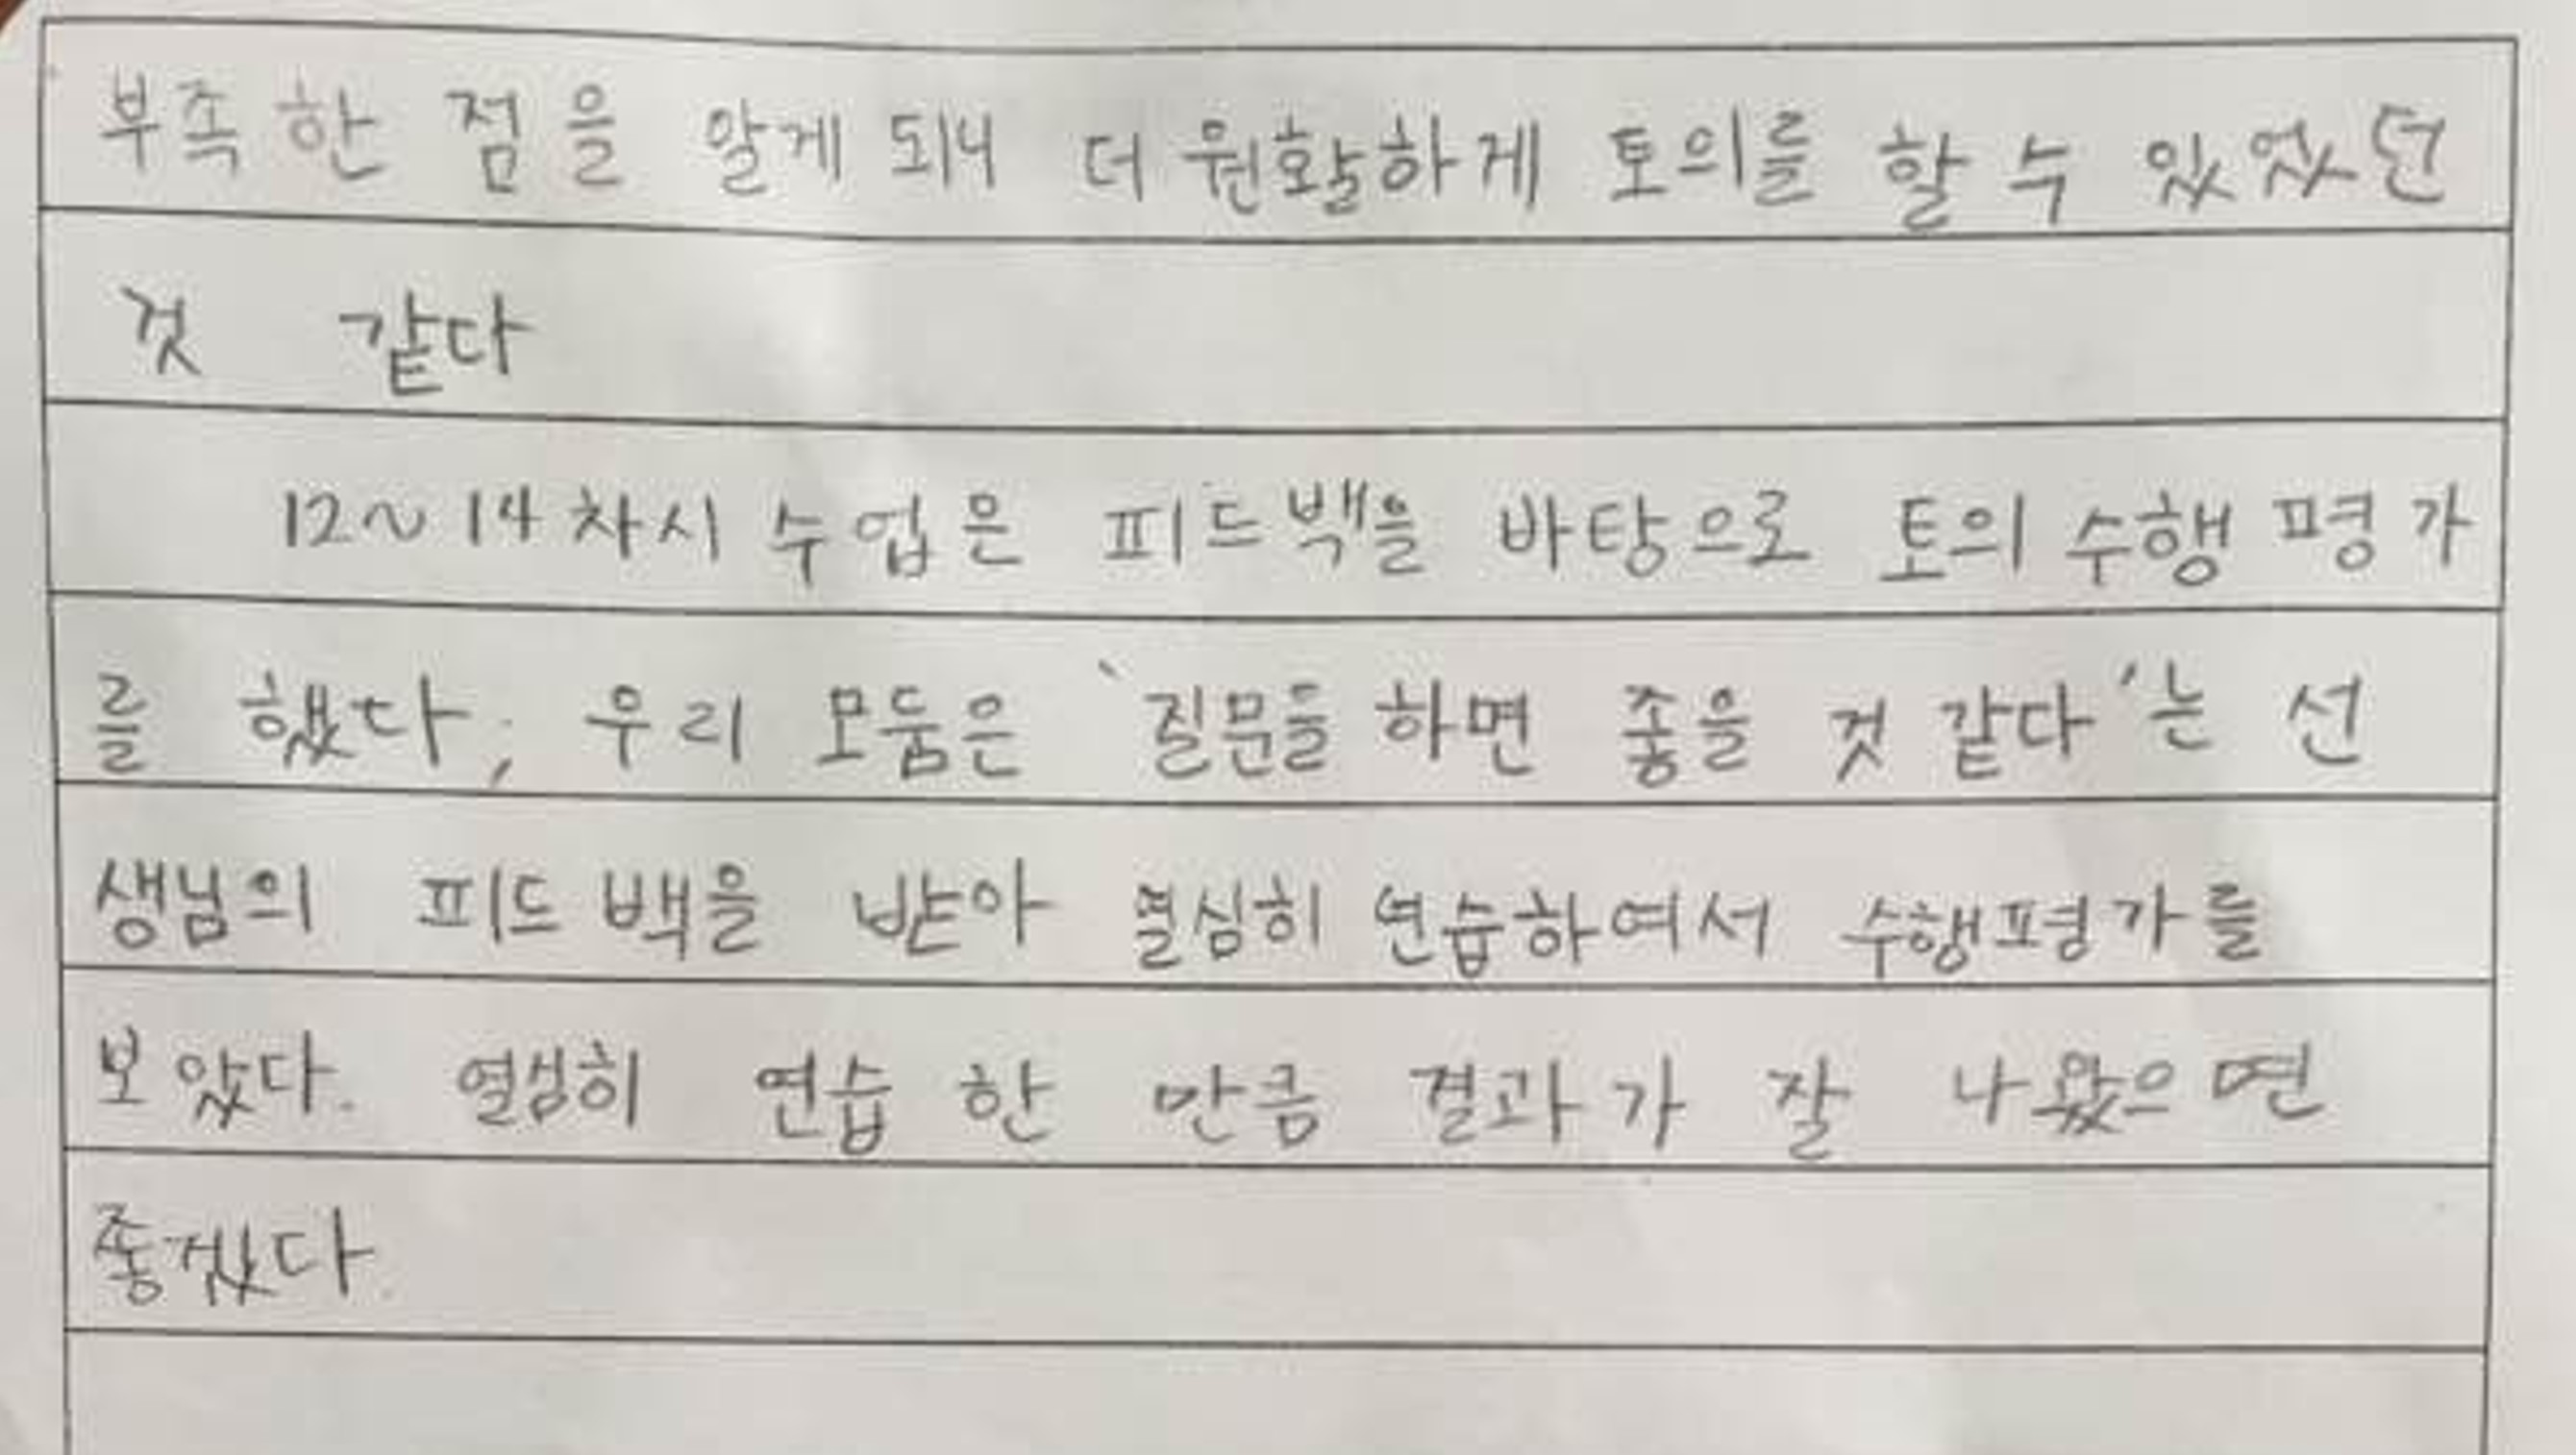 부족한 점을 알게 되니 더 원활하게 토의를 할 수 있었던
것 같다
12~14차시 수업은 피드백을 바탕으로 토의 수행평가
를 했다; 우리 모둠은 '질문을 하면 좋을 것 같다'는 선
생님의 피드백을 받아 열심히 연습하여서 수행평가를
보았다. 열심히 연습 한 만큼 결과가 잘 나왔으면
좋겠다.